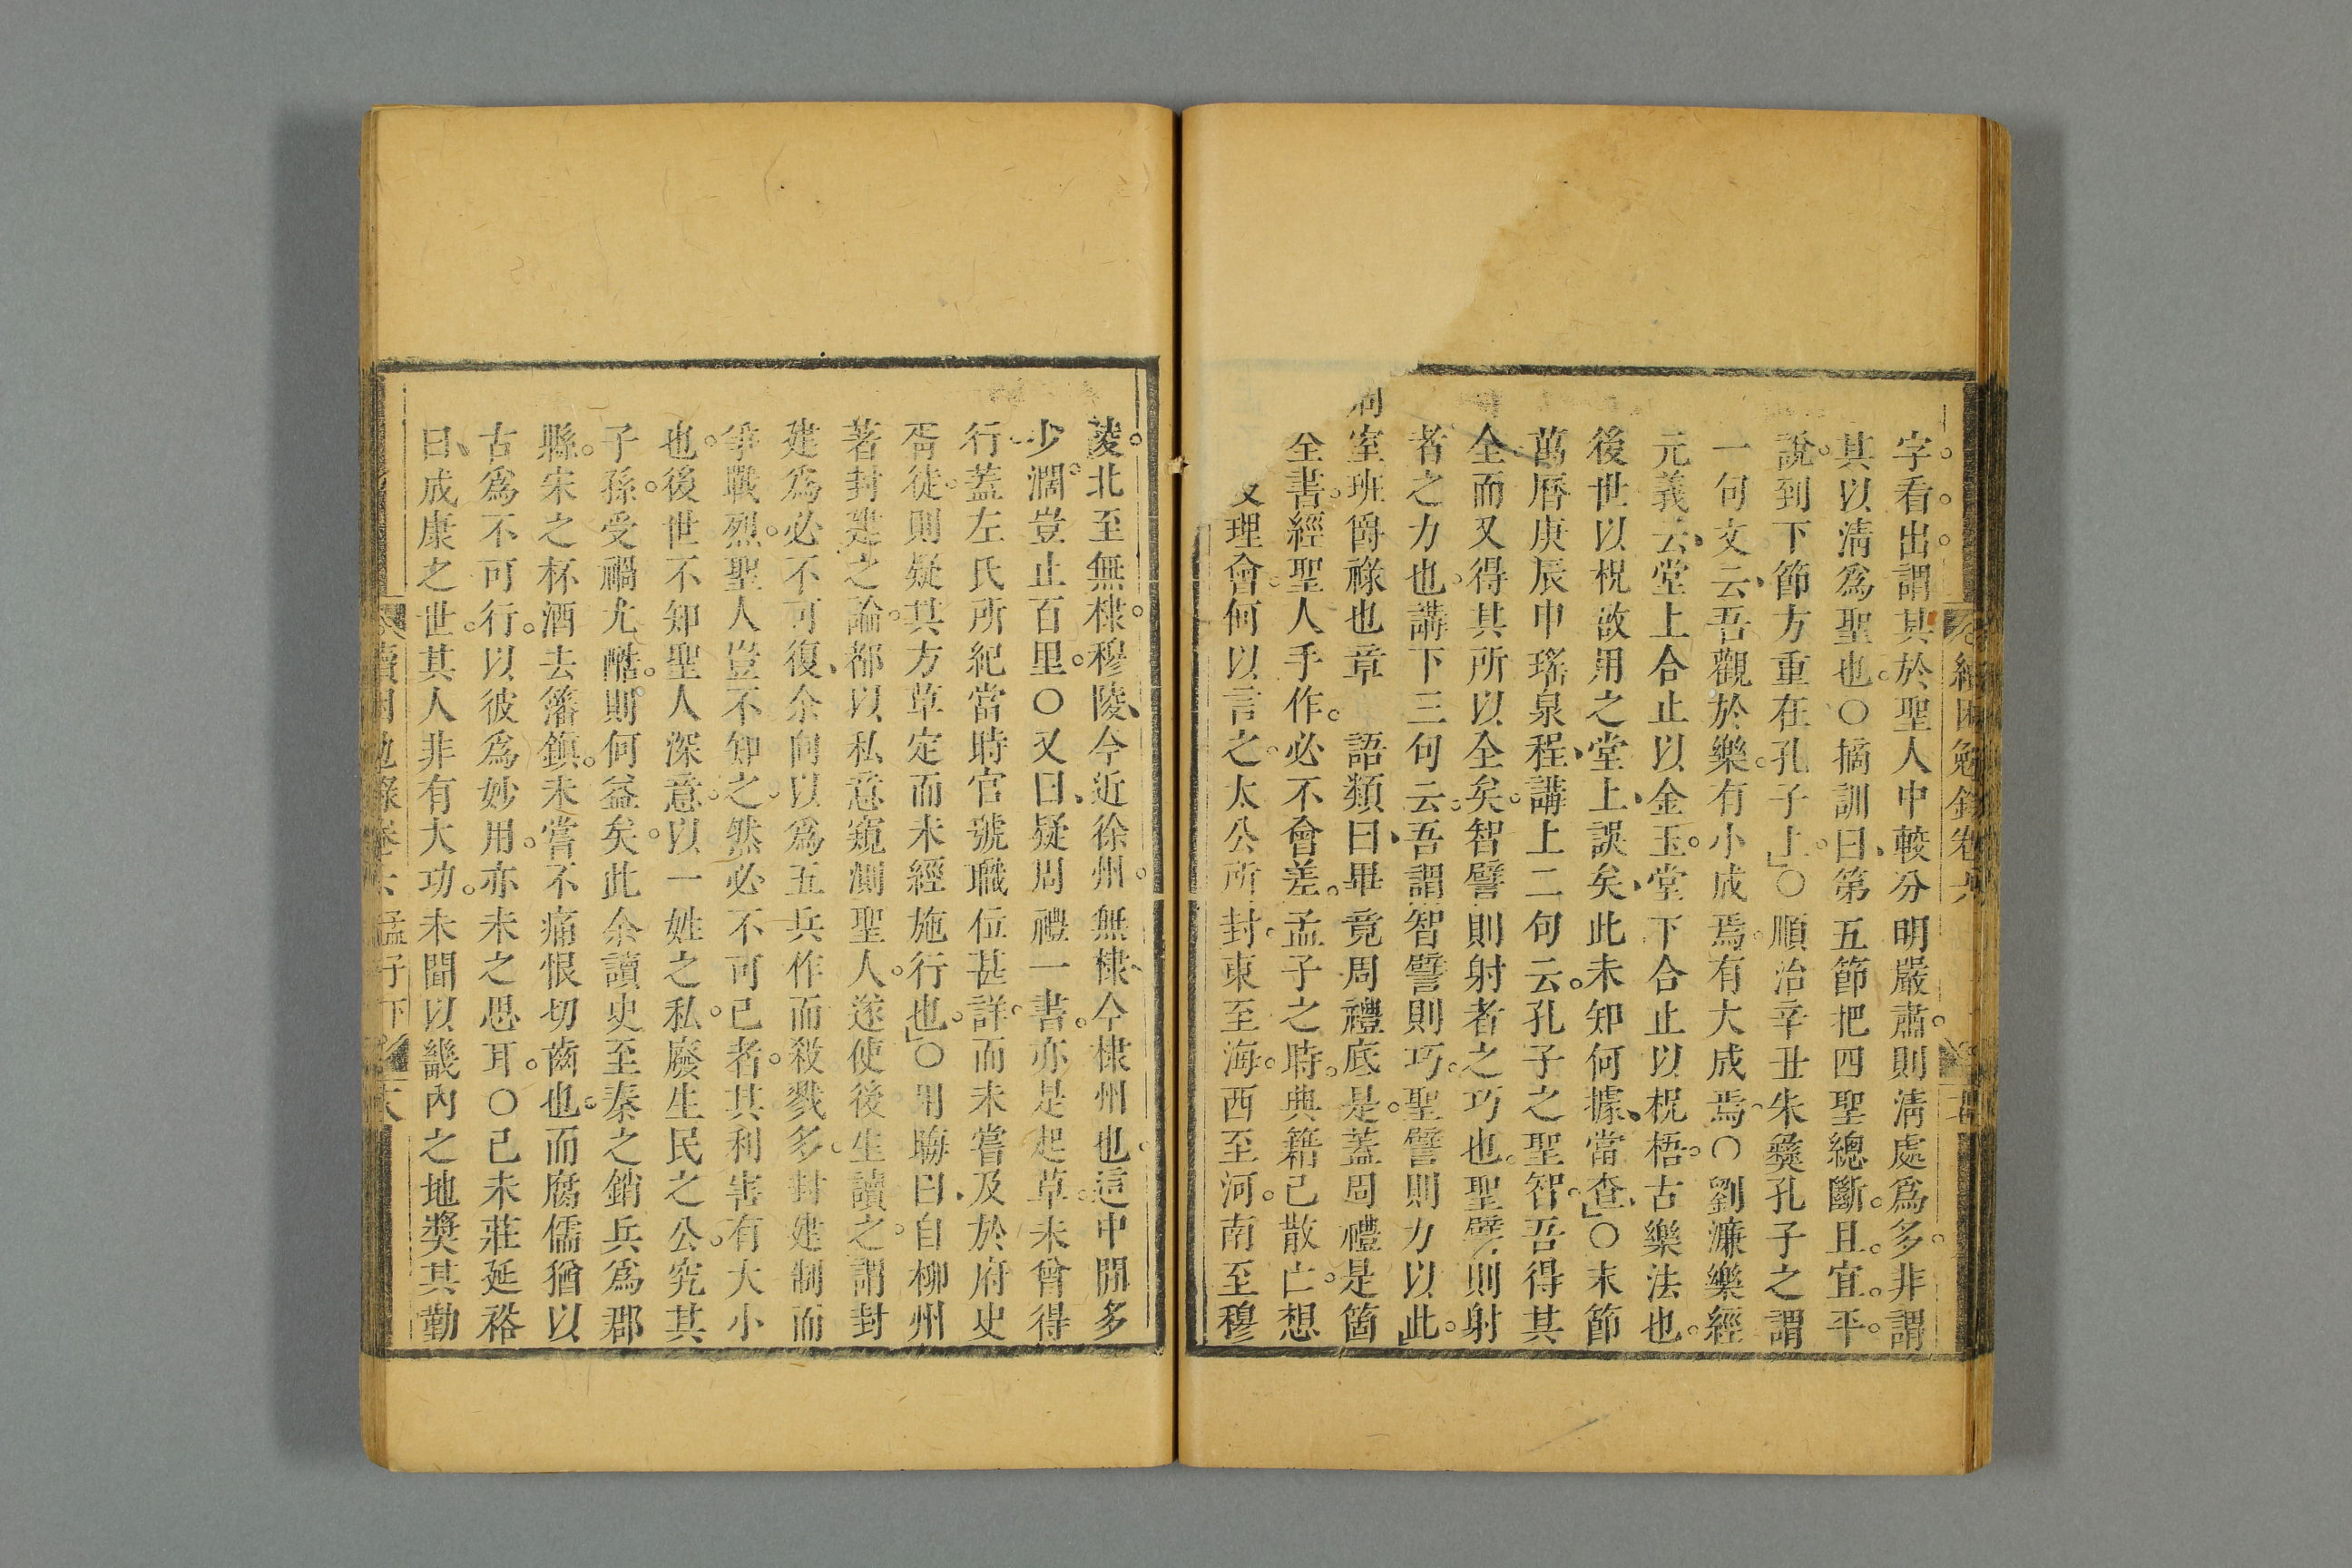 字看出謂其於聖人中較分明嚴肅則淸處爲多非謂
其以淸爲聖也○摘訓曰第五節把四聖總斷且宜平
說到下節方重在孔子上○順治辛丑朱彝孔子之謂
一句文云吾觀於樂有小成焉有大成焉○劉濂樂經
元義云堂上合止以金玉堂下合止以柷梧古樂法也
後世以柷敔用之堂上誤矣此未知何據當查○末節
萬曆庚辰申瑤泉程講上二句云孔子之聖智吾得其
全而又得其所以全矣智譬則射者之巧也聖譬則射
者之力也講下三句云吾謂智譬則巧聖譬則力以此
室班爵祿也章 語類曰畢竟周禮底是蓋周禮是箇
全書經聖人手作必不會差孟子之時典籍已散亡想
理會何以言之太公所封東至海西至河南至穆
陵北至無棣穆陵今近徐州無棣今棣州也這中間多
少濶豈止百里○又曰疑周禮一書亦是起草未曾得
行蓋左氏所紀當時官號職位甚詳而未嘗及於府史
胥徒則疑其方草定而未經施行也○用晦曰自柳州
著封建之論都以私意窺測聖人遂使後生讀之謂封
建爲必不可復余向以爲五兵作而殺戮多封建制而
爭戰烈聖人豈不知之然必不可已者其利害有大小
也後世不知聖人深意以一姓之私廢生民之公究其
子孫受禍尤酷則何益矣此余讀史至秦之銷兵爲郡
縣宋之杯酒去藩鎭未嘗不痛恨切齒也而腐儒猶以
古爲不可行以彼爲妙用亦未之思耳○己未莊延裕
曰成康之世其人非有大功未聞以畿內之地獎其勤